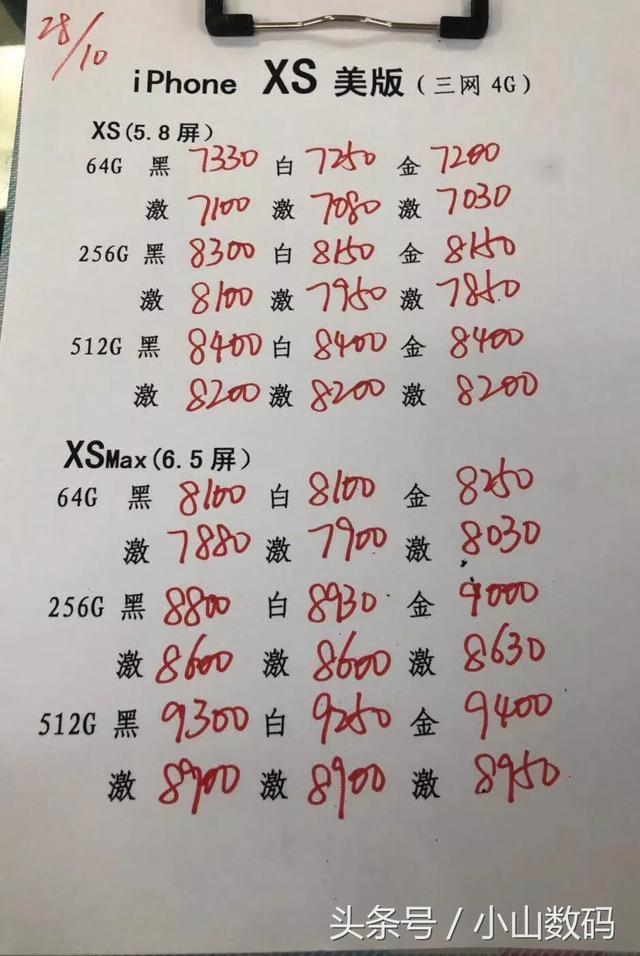 28/10
iPhone XS 美版(三网 4G)
XS(5.8屏)
64G 黑 7330 白 7250 金 7200
激 7100 激 7080 激 7030
256G 黑 8300 白 8150 金 8150
激 8100 激 7950 激 7850
512G 黑 8400 白 8400 金 8400
激 8200 激 8200 激 8200
XSMax(6.5屏)
64G 黑 8100 白 8100 金 8250
激 7880 激 7900 激 8030
256G 黑 8800 白 8930 金 9000
激 8600 激 8600 激 8630
512G 黑 9300 白 9250 金 9400
激 8900 激 8900 激 8950
头条号 / 小山数码